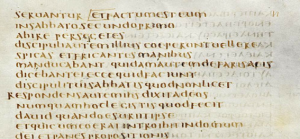 seruantur / et factum est eum
in sabbato secundo primo
abire per segetes
discipuli autem illius coeperunt uellere
spicas et fricantes manibus
manducabant quidam autem de farisaeis
dicebant ei ecce quid faciunt
discipuli tui sabbatis quod non licet
respondens autem ihs dixit ad eos
numquam hoc legistis quod fecit
dauid quando esuriit ipse
et qui cum eo erat introibit in domum
dei et panes propositionis